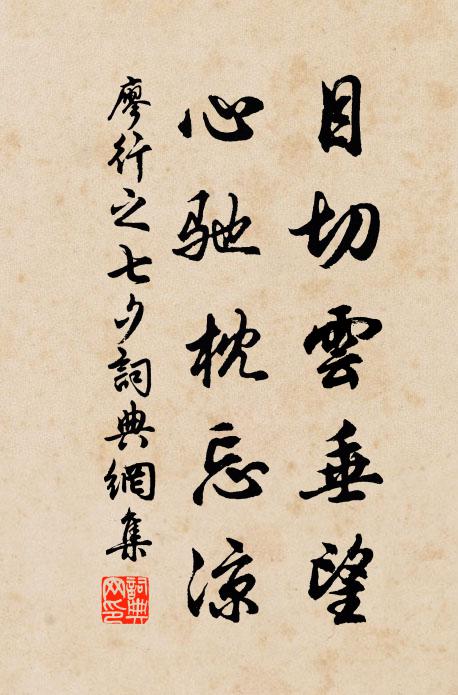 目切雲垂望
心馳枕忘涼
廖行之七夕詞典網集
詞典網印